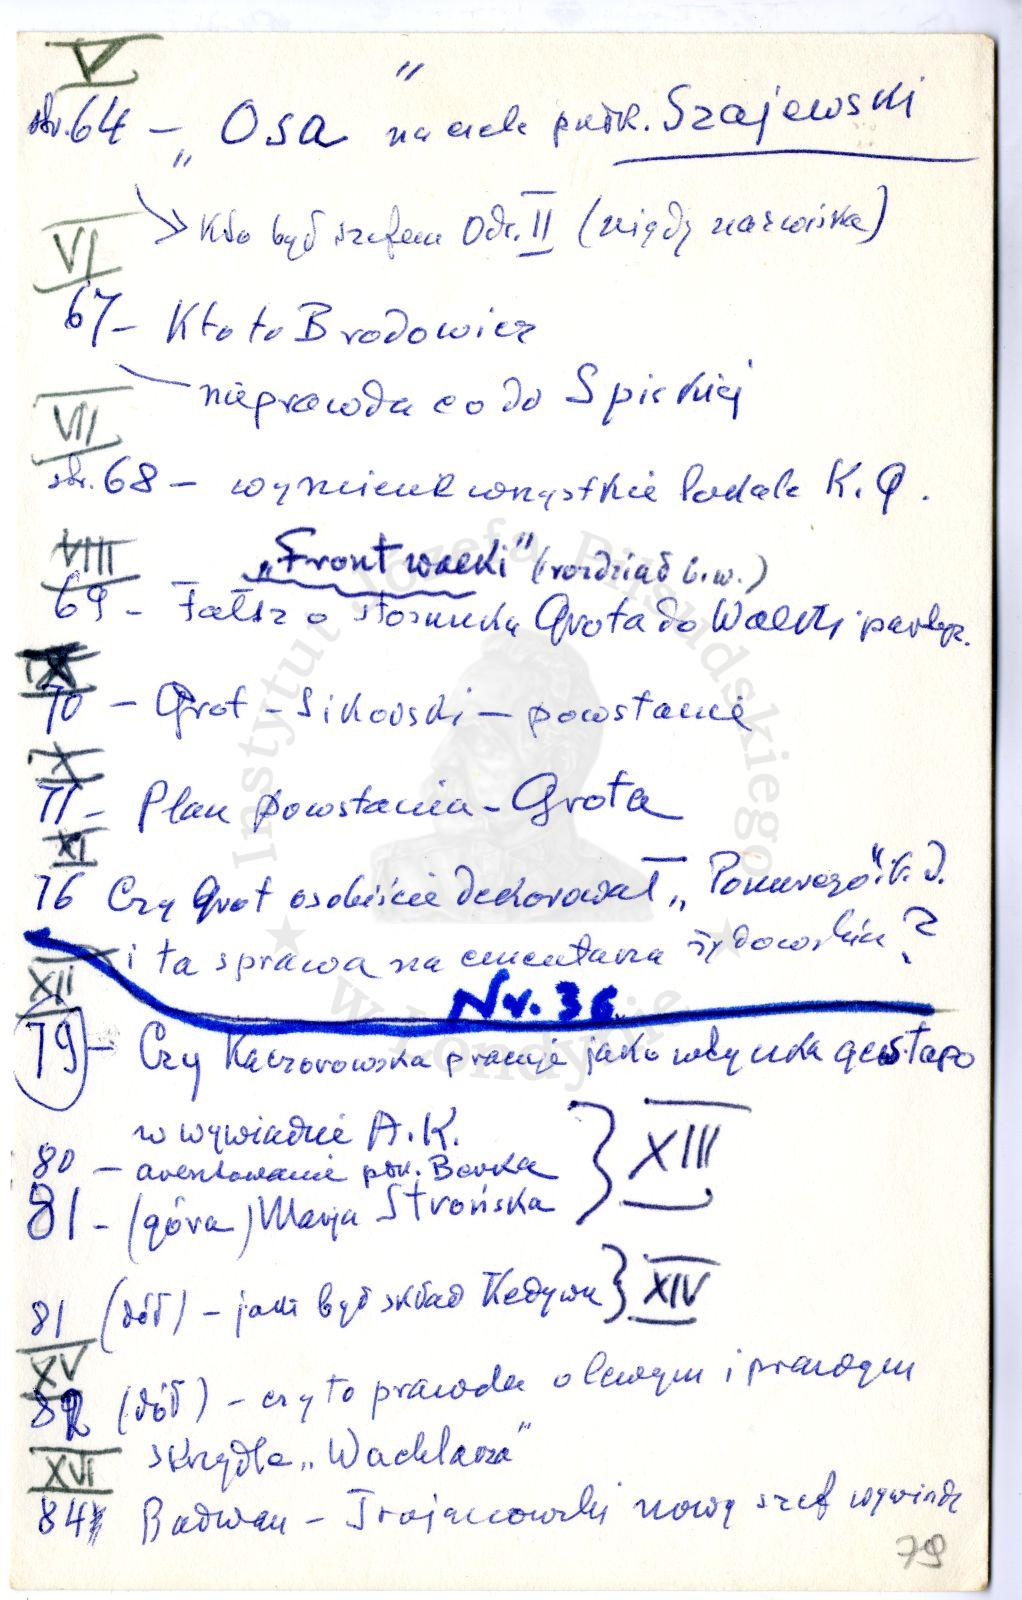 V
str. 64 – „Osa" na czele ppłk. Szajewski
Kto był szefem Odz. II (między nazwiska)
VI
67 – Kto to Brodowicz
nieprawda co do Spickiej
VII
str. 68 – wszystkie K.G.
VIII
„Front walki" (rozdział b.w.)
69 – Fałsz o stosunku Grota do Walki partyz.
IX
70 – Grot – Sikorski – powstanie
X
71 – Plan powstania – Grota
XI
76 Czy Grot osobiście dekorował „Ponurego" i
i ta sprawa na cmentarzu żydowskim?
XII
Nr. 36
79 – Czy Kaczorowska pracuje jako wtyczka gestapo
w wywiadzie A.K.
80 – aresztowanie płk. Borka
81 – (góra) Marja Strońska
XIII
81 (dół) – jaki był skład Kedywu
XIV
XV
82 (dół) – czy to prawda o lewym i prawym
skrzydle „Wachlarza"
XVI
84 Badwan – Trojanowski nowy szef wywiadu
79
Instytut Józefa Piłsudskiego
w Londynie